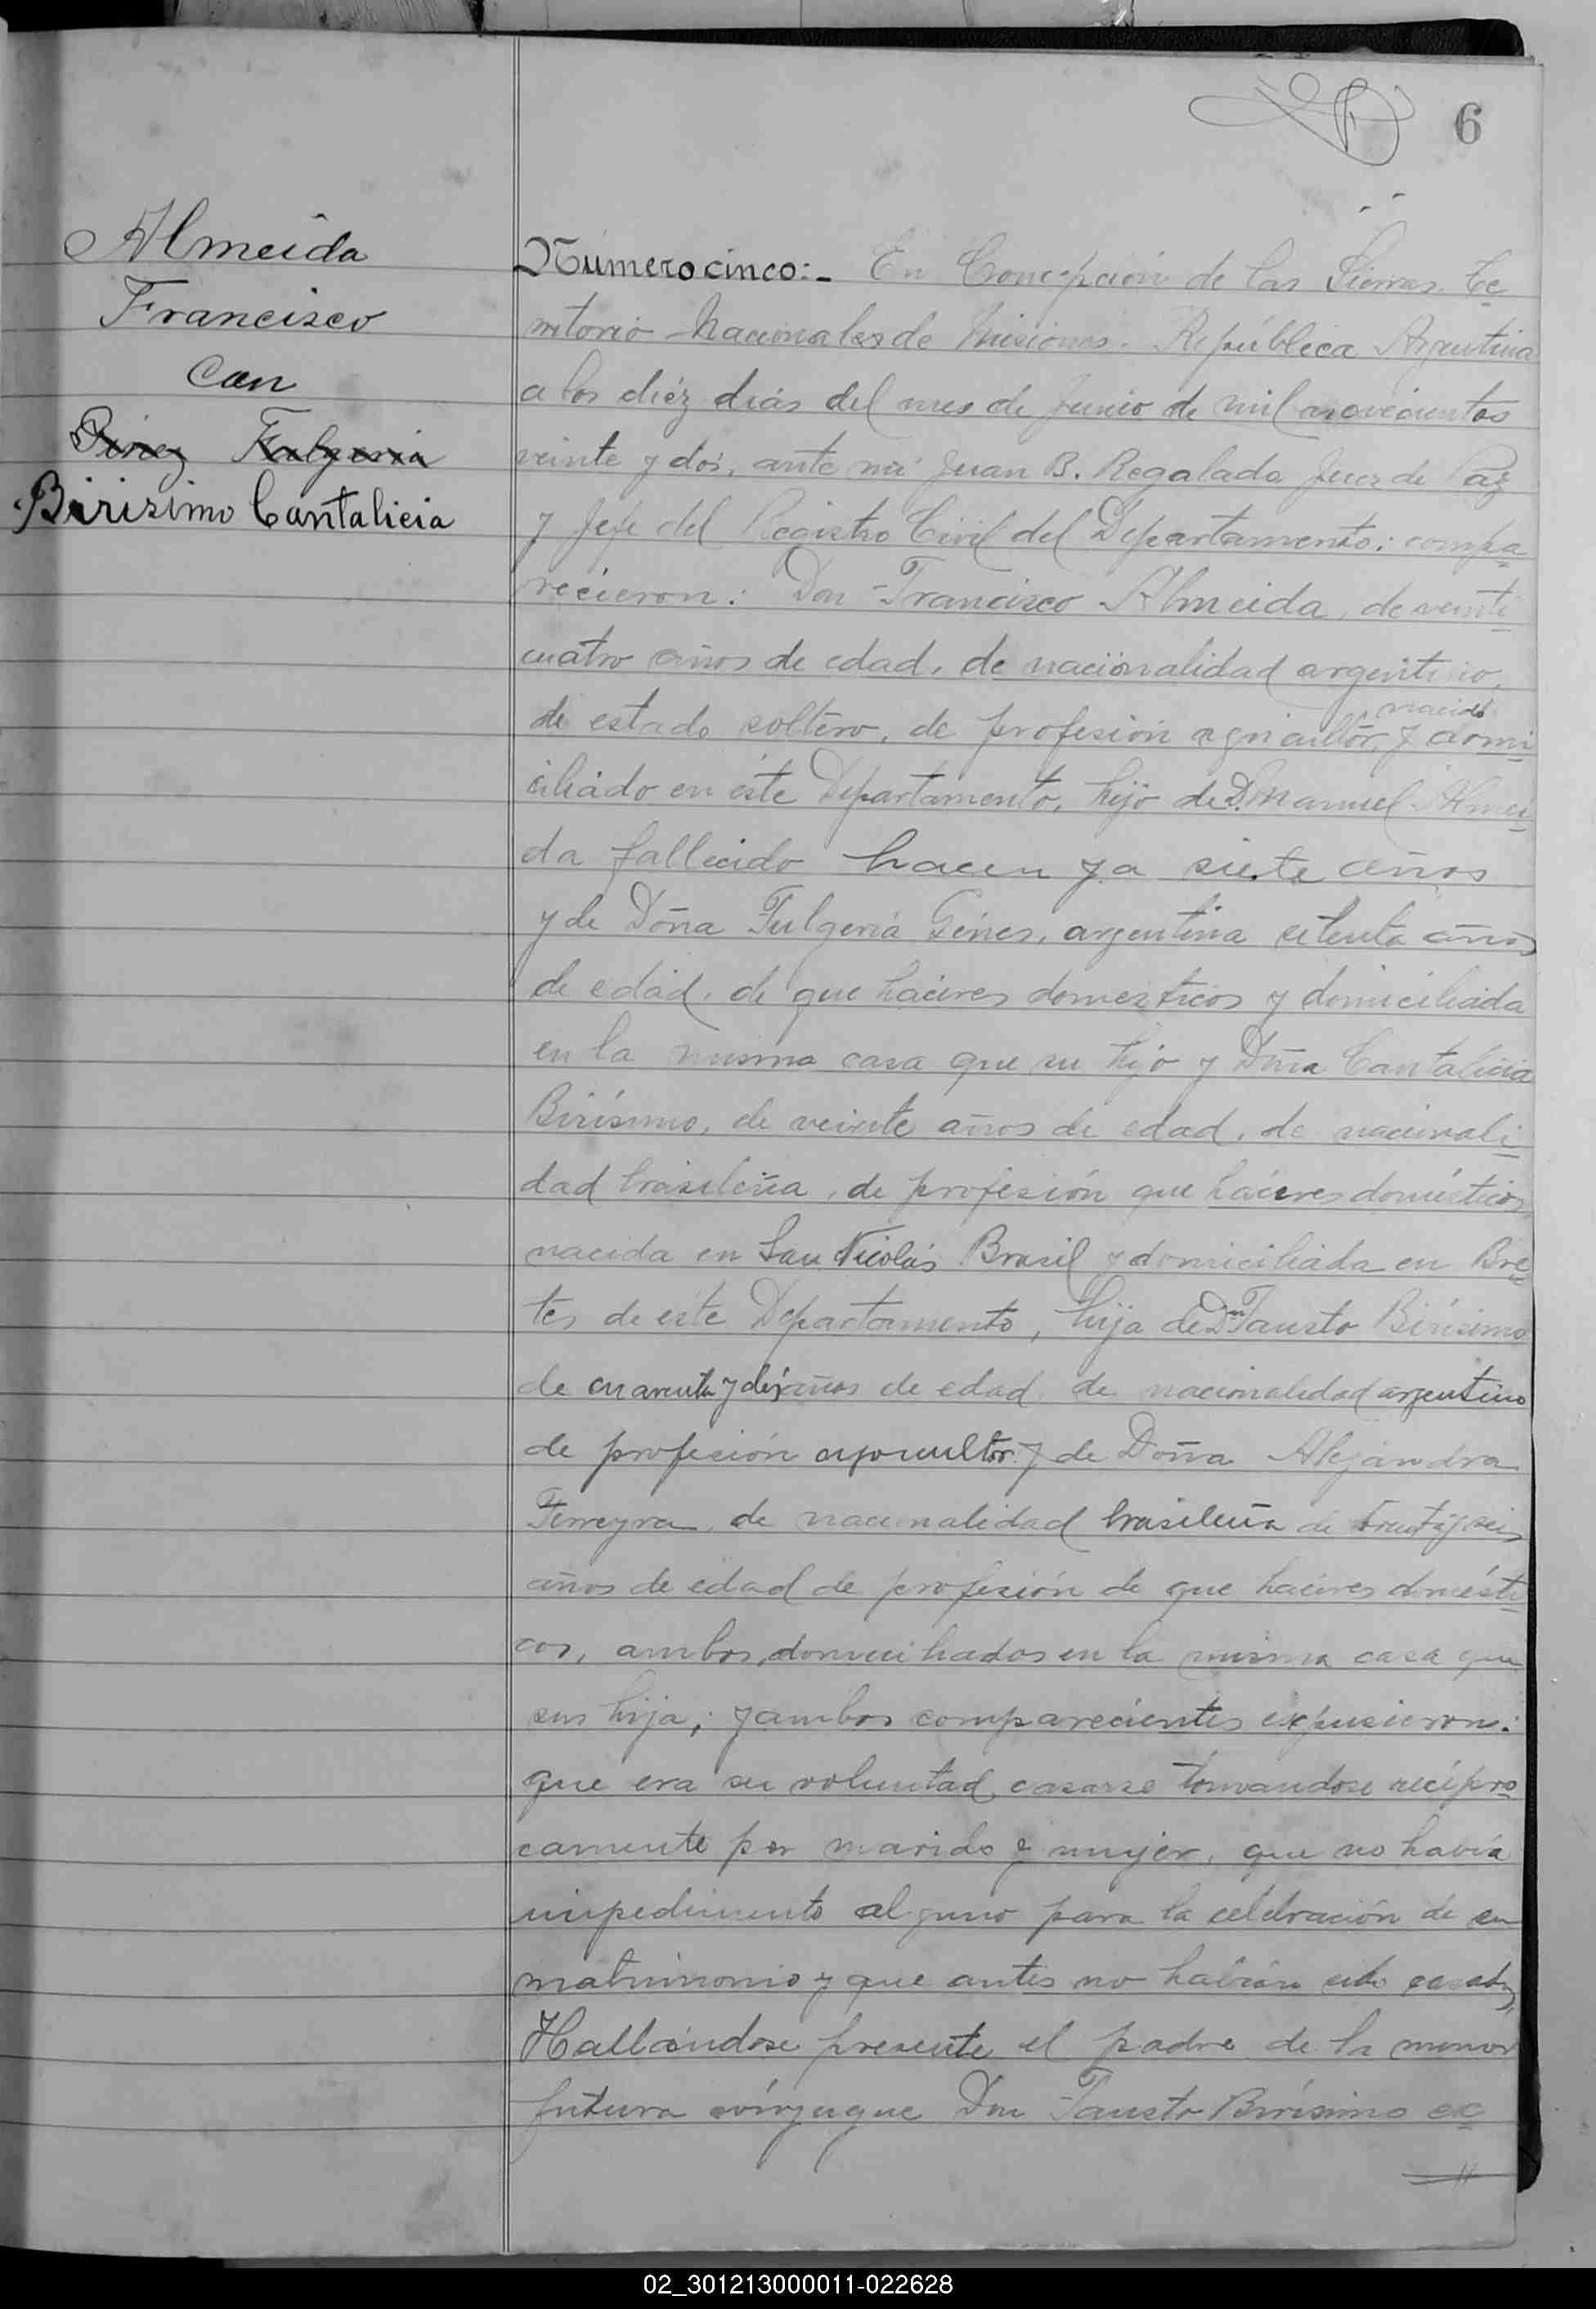 6
Almeida
Francisco
Con
Pirez Fulgeria
Birisimo Cantalicia
Número cinco:- En Concepción de las Sierras Te
rritorio Nacionales de Misiones. República Argentina
a los diéz diás del mes de Junio de mil novecientos
veinte y dos, ante mi Juan B. Regalado Juez de Paz
y Jefe del Registro Civil del Departamento; compa
recieron: Don Francisco Almeida, de veinti
cuatro años de edad, de nacionalidad argentino,
de estado soltero, de profesión agricultor, nacido y domi
ciliado en éste Departamento, hijo de D. Manuel Almei
da fallecido hacen ya siete años
y de Doña Fulgeria Génes, argentina setenta años
de edad, de que haceres domezticos y domiciliada
en la misma casa que su hijo y Doña Cantalicia
Birisimo, de veinte años de edad, de nacionali
dad brasileña, de profesión que haceres domésticos,
nacida en San Nicolás Brasil y domiciliada en Bre
tes de este Departamento, hija de Dn Fausto Birisimo
de cuarenta y diez años de edad, de nacionalidad argentino
de profesión agricultor y de Doña Alejandra
Ferreyra, de nacionalidad brasileña de treinta y seis
años de edad de profesión de que haceres domésti
cos, ambos domiciliados en la misma casa que
sus hija; y ambos comparecientes expusieron:
que era su voluntad casarse tomandose recípro
camente por marido y mujer, que no havía
impedimento alguno para la celebración de su
matrimonio y que antes no habían sido casados,
Hallándose presente el padre de la menor
futura cónyugue Don Fausto Birisimo ex
02_301213000011-022628